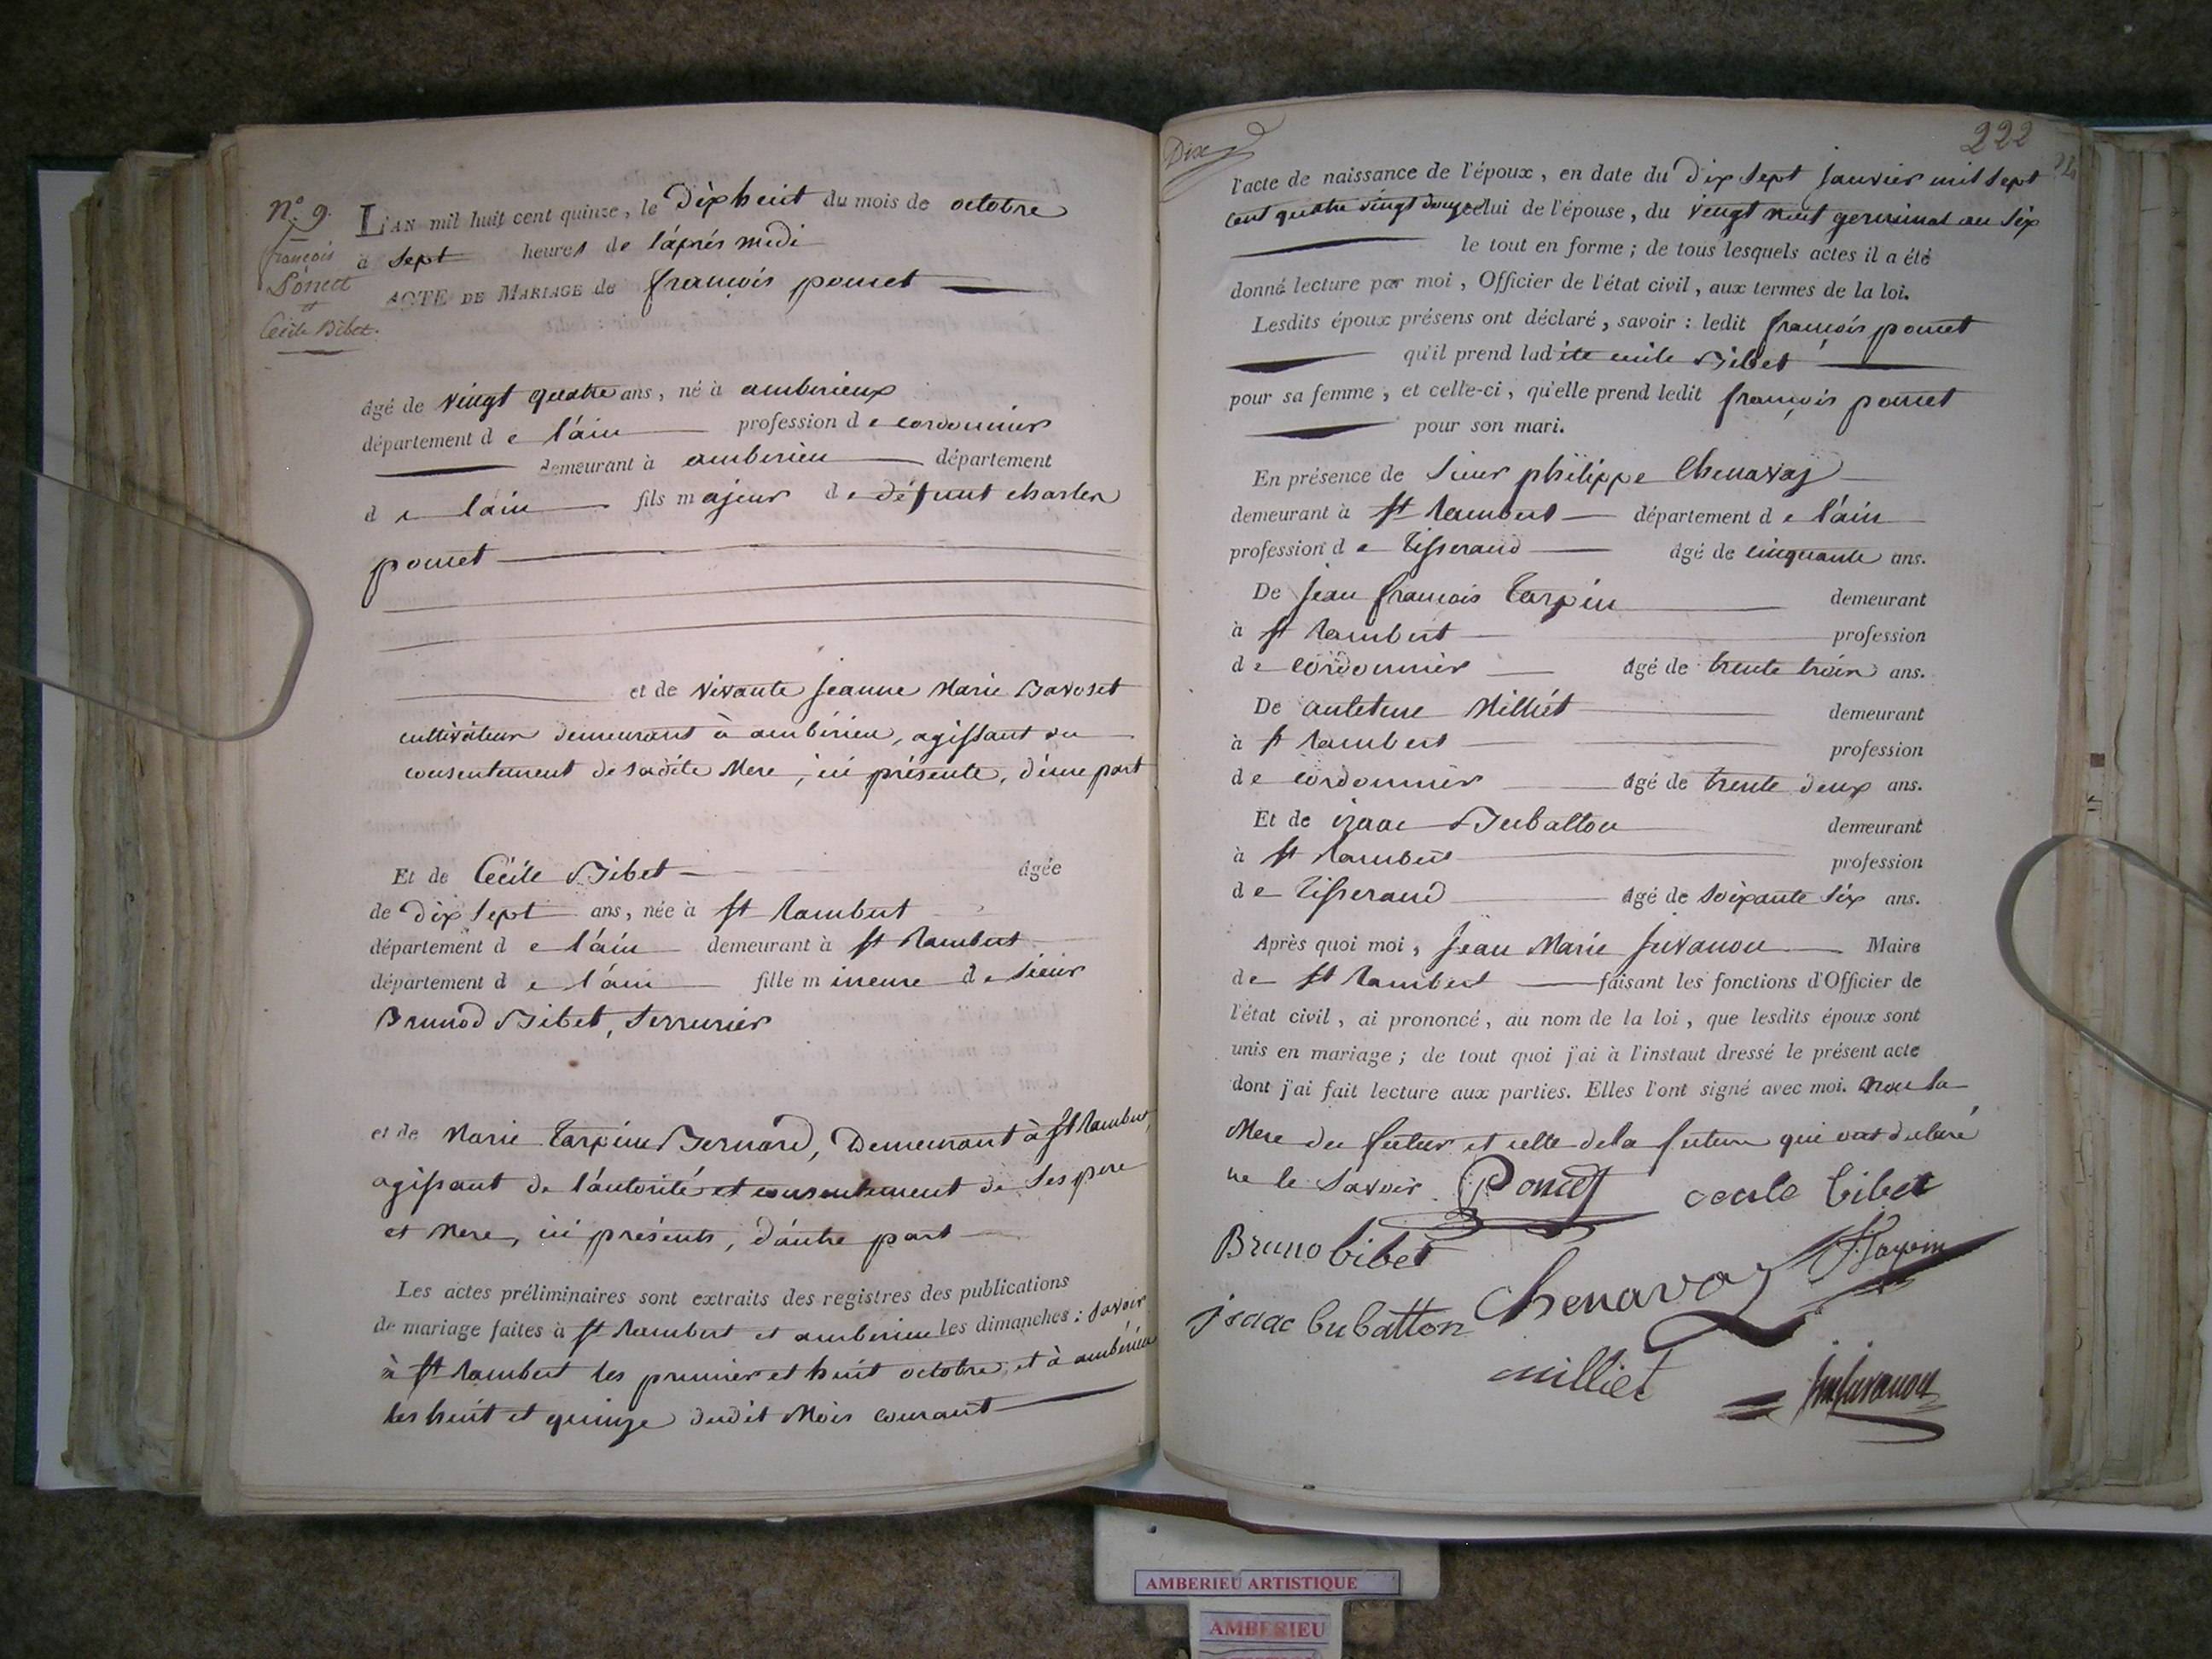 N.° 9.
françois
Poncet
et
Cécile Bibet.
L'AN mil huit cent quinze, le Dix huit du mois de octobre
à sept heures de l'aprés midi
ACTE DE MARIAGE de françois poncet
âgé de vingt quatre ans, né à amberieux
département de l'ain profession de cordonnier
demeurant à amberieu département
de l'ain fils majeur de défunt charles
poncet
et de vivante jeanne Marie Savoset
cultivateur demeurant à ambérieu, agissant du
consentement de sadite Mere, ici présente, d'une part
Et de Cécile Bibet âgée
de dix sept ans, née à st Rambert
département de l'ain demeurant à st Rambert
département de l'ain fille mineure de sieur
Brunod Bibet, serrurier
et de Marie Tarpin Bernard, Demeurant à st Rambert,
agissant de l'autorité et consentement de ses pere
et Mere, ici présents, d'autre part
Les actes préliminaires sont extraits des registres des publications
de mariage faites à st Rambert et amberieu les dimanches : savoir
à st Rambert les premier et huit octobre, et à ambérieu
les huit et quinze dudit Mois courant
Dix
222
l'acte de naissance de l'époux, en date du dix sept janvier mil sept
cent quatre vingt douze celui de l'épouse, du vingt neuf germinal an six
le tout en forme ; de tous lesquels actes il a été
donné lecture par moi, Officier de l'état civil, aux termes de la loi.
Lesdits époux présens ont déclaré, savoir : ledit françois poncet
qu'il prend ladite cécile Bibet
pour sa femme, et celle-ci, qu'elle prend ledit françois poncet
pour son mari.
En présence de sieur philippe Chenavaz
demeurant à st Rambert département de l'ain
profession de tisserand âgé de cinquante ans.
De jean françois Tarpin demeurant
à st Rambert profession
de cordonnier âgé de trente trois ans.
De antelme Milliet demeurant
à st Rambert profession
de cordonnier âgé de trente deux ans.
Et de isaac Bubatton demeurant
à st Rambert profession
de tisserand âgé de soixante six ans.
Après quoi moi, jean Marie juvanon Maire
de st Rambert faisant les fonctions d'Officier de
l'état civil, ai prononcé, au nom de la loi, que lesdits époux sont
unis en mariage ; de tout quoi j'ai à l'instant dressé le présent acte
dont j'ai fait lecture aux parties. Elles l'ont signé avec moi. non la
Mere du futur et celle de la future qui ont declaré
ne le savoir. Poncet cecile bibet
Bruno bibet
Chenavaz
isaac bubatton
milliet
AMBERIEU ARTISTIQUE
AMBERIEU